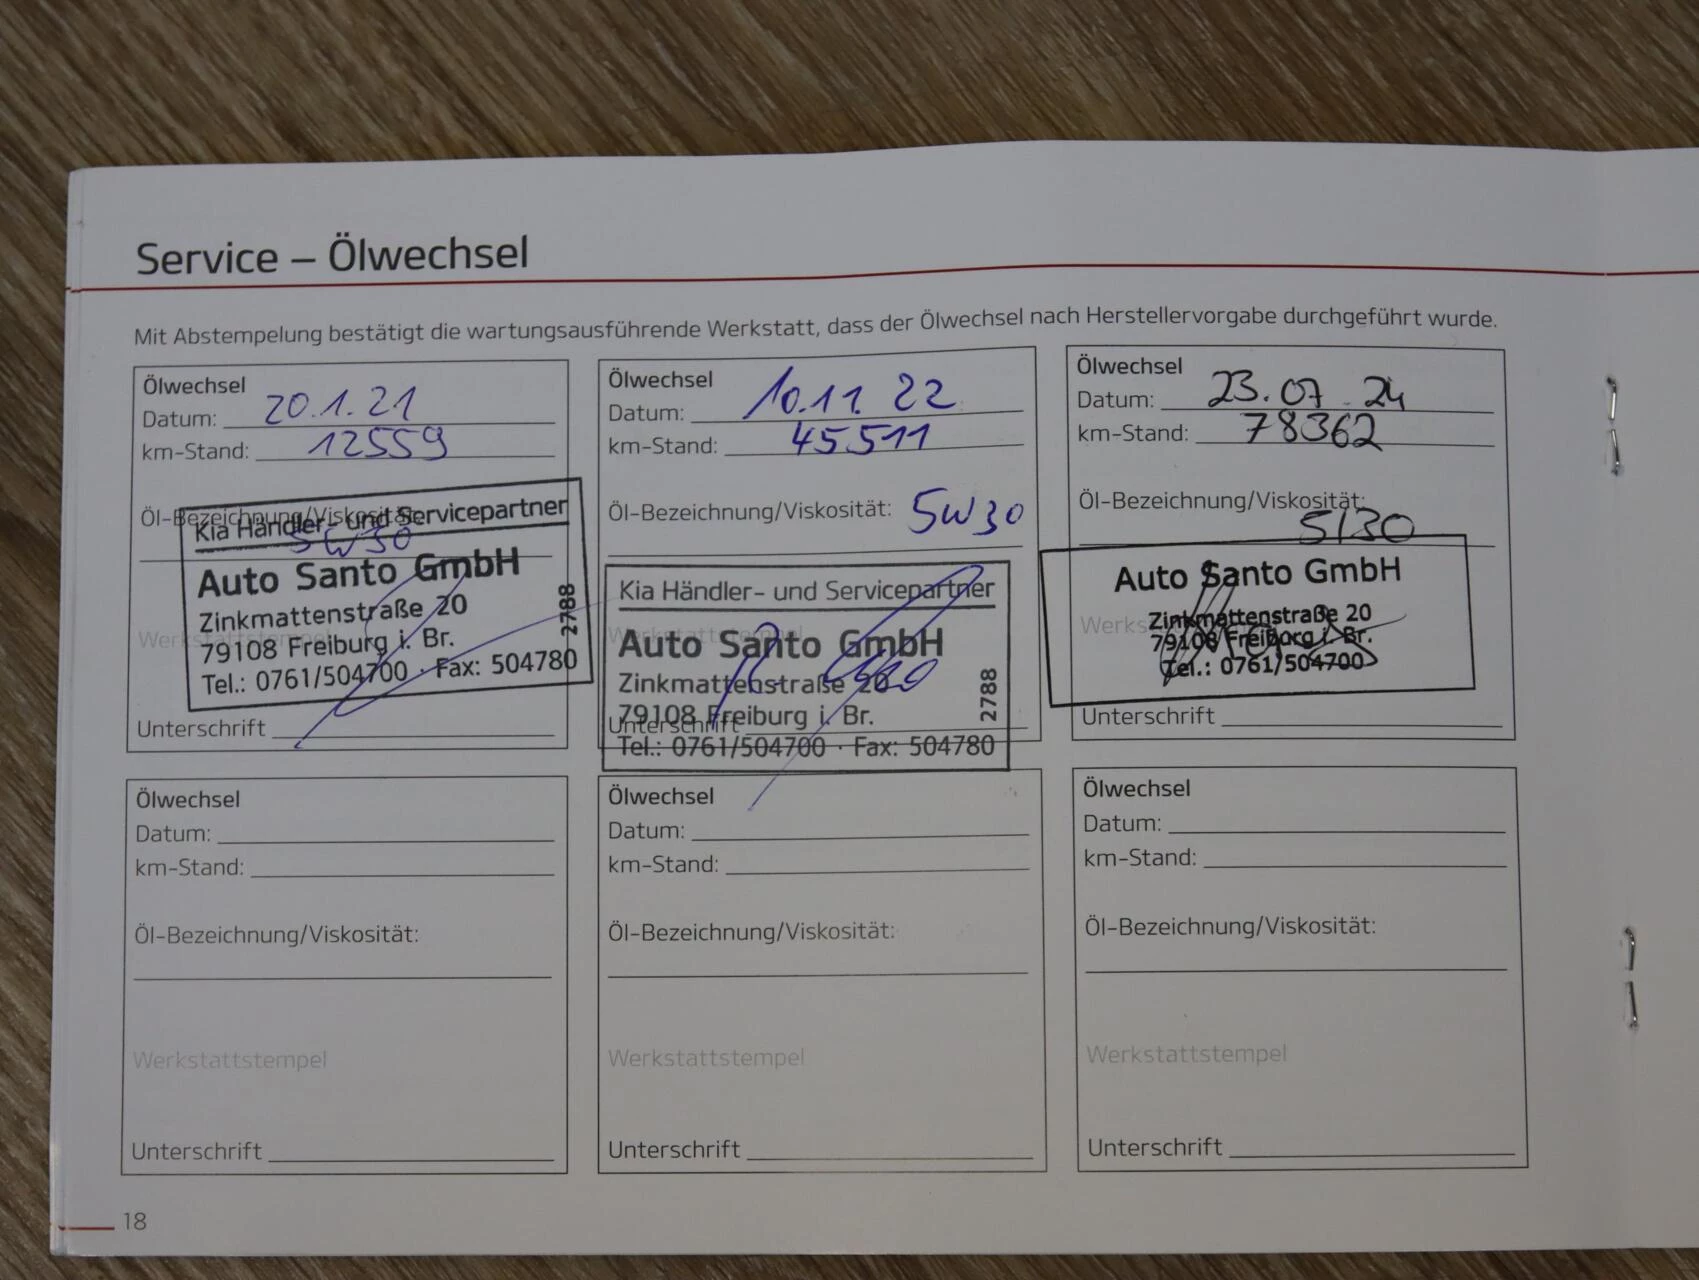 Service – Ölwechsel
Mit Abstempelung bestätigt die wartungsausführende Werkstatt, dass der Ölwechsel nach Herstellervorgabe durchgeführt wurde.
Ölwechsel
Datum: 20.1.21
km-Stand: 12559
Öl-Bezeichnung/Viskosität:
5W30
Kia Händler- und Servicepartner
Auto Santo GmbH
Zinkmattenstraße 20
79108 Freiburg i. Br.
Tel.: 0761/504700 · Fax: 504780
2788
Werkstattstempel
Unterschrift
Ölwechsel
Datum: 10.11.22
km-Stand: 45511
Öl-Bezeichnung/Viskosität: 5W30
Kia Händler- und Servicepartner
Werkstattstempel
Auto Santo GmbH
Zinkmattenstraße 20
79108 Freiburg i. Br.
Tel.: 0761/504700 · Fax: 504780
2788
Unterschrift
Ölwechsel
Datum: 23.07.24
km-Stand: 78362
Öl-Bezeichnung/Viskosität:
5/30
Auto Santo GmbH
Zinkmattenstraße 20
79108 Freiburg i. Br.
Tel.: 0761/504700
Unterschrift
Ölwechsel
Datum:
km-Stand:
Öl-Bezeichnung/Viskosität:
Werkstattstempel
Unterschrift
Ölwechsel
Datum:
km-Stand:
Öl-Bezeichnung/Viskosität:
Werkstattstempel
Unterschrift
Ölwechsel
Datum:
km-Stand:
Öl-Bezeichnung/Viskosität:
Werkstattstempel
Unterschrift
18